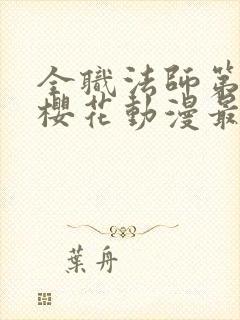 全職法師第
櫻花動漫最
葉舟